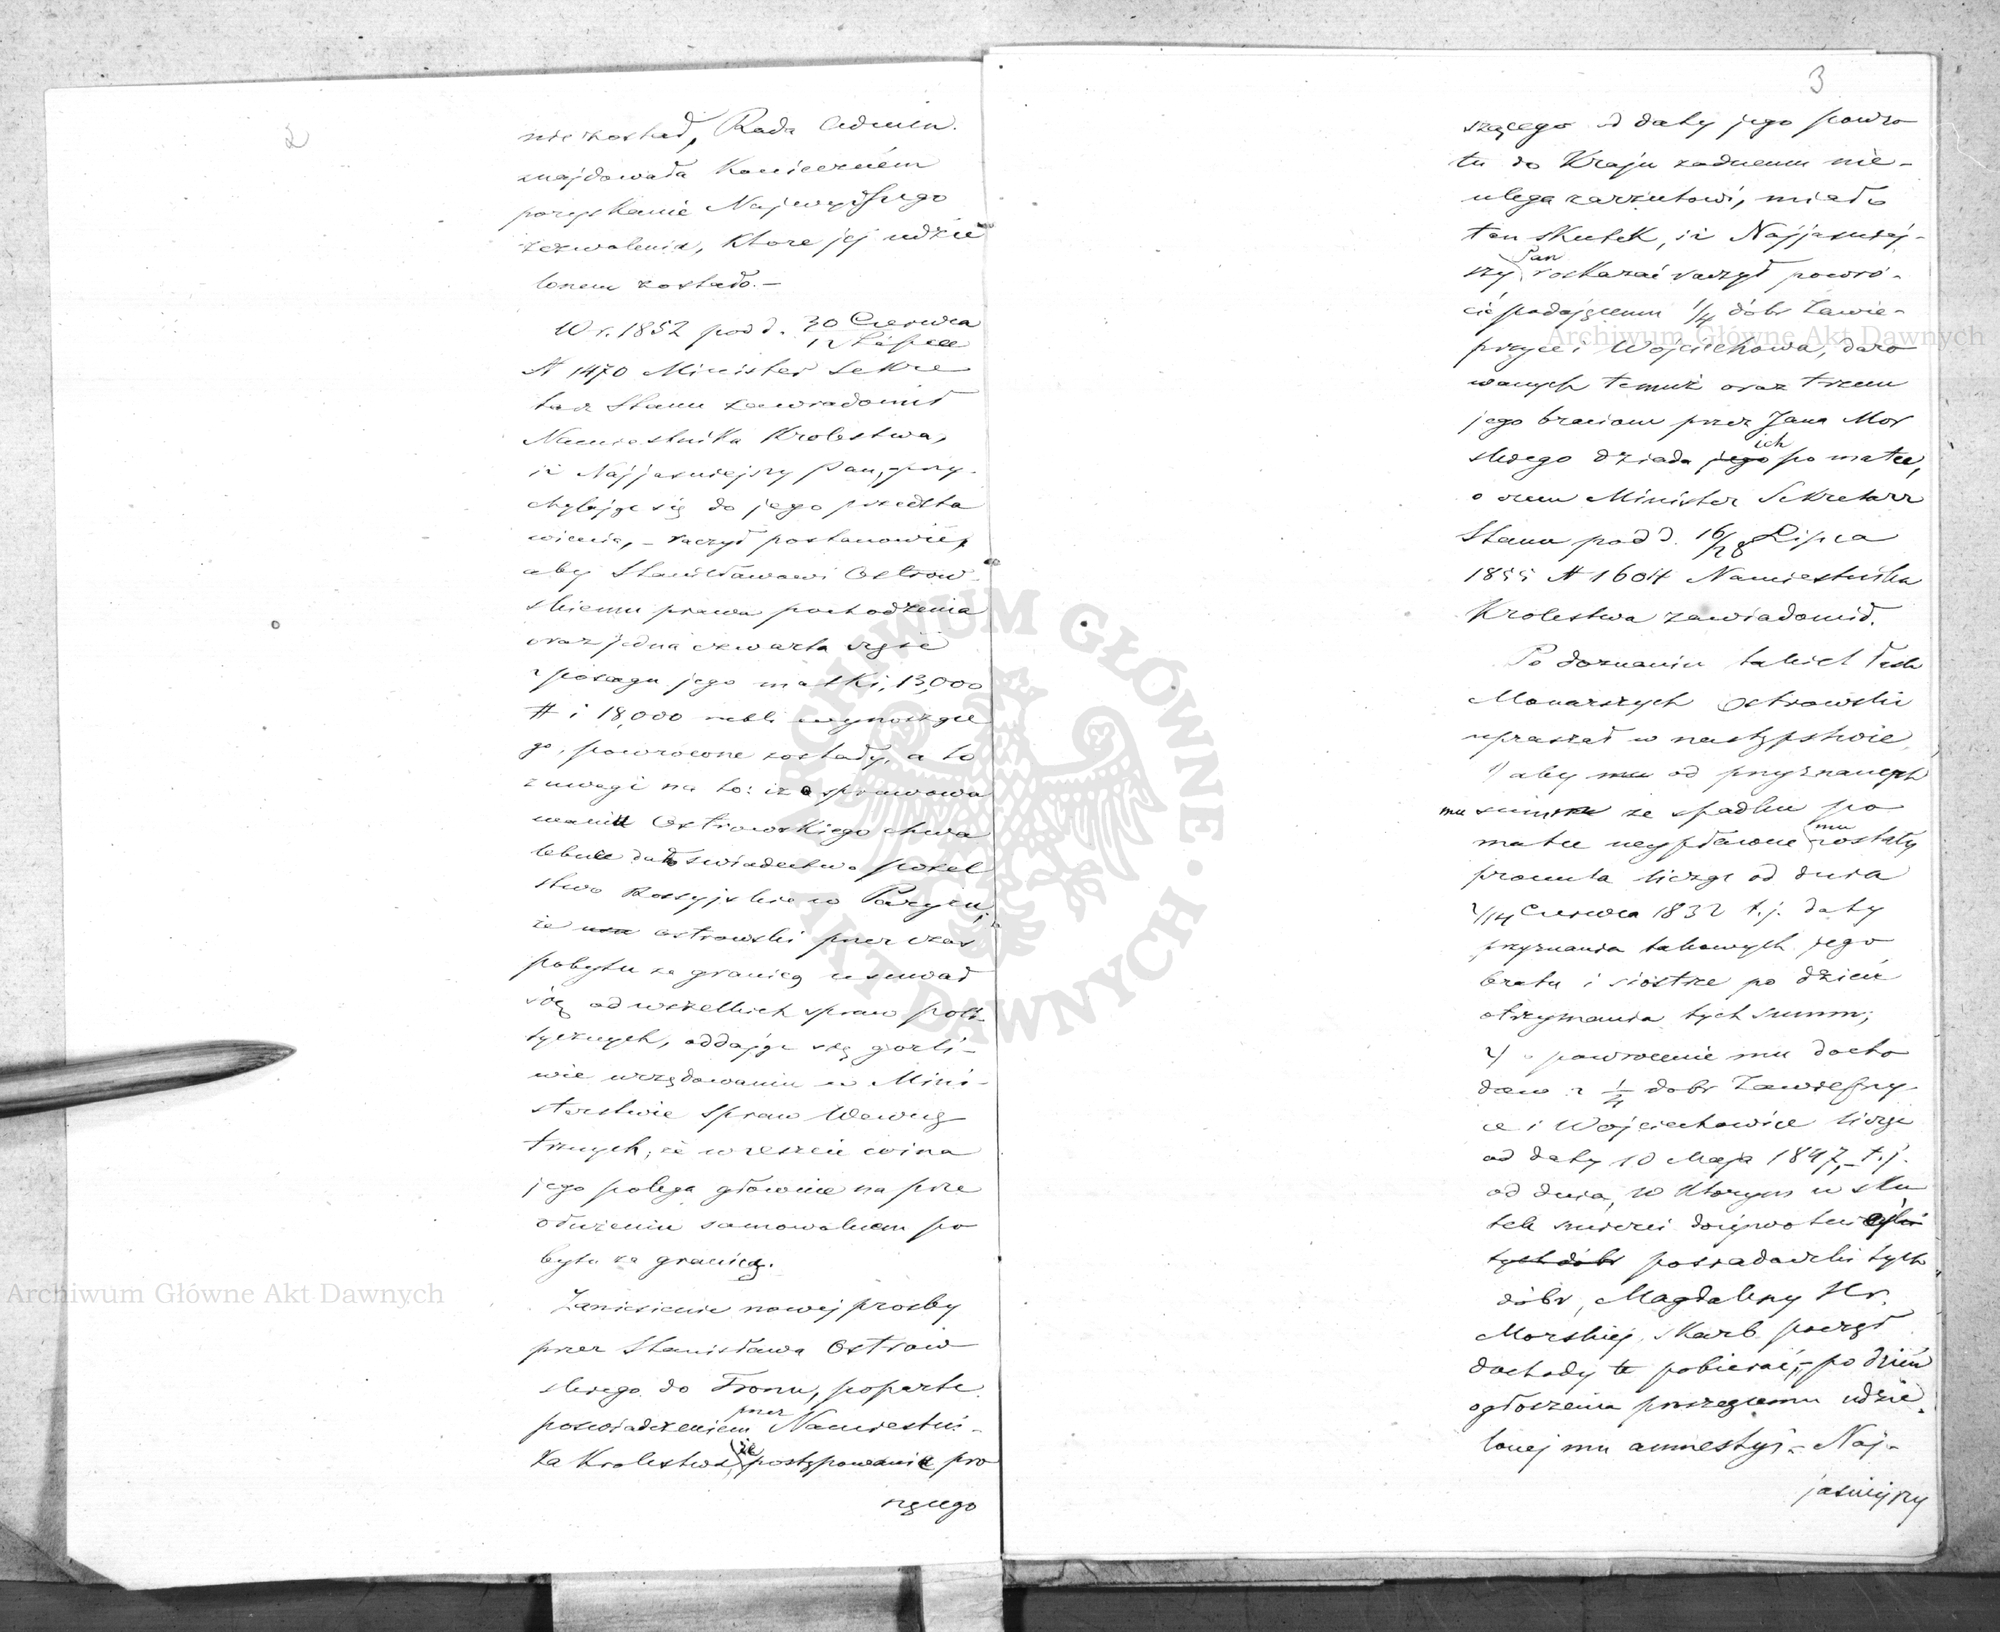 2
nie został, Rada Admin.
znajdowała konieczném
pozyskanie Najwyższego
zezwolenia, które jej udzie
lonem zostało. –
W r. 1852 pod d. 30 Czerwca
12 Lipca
N 1470 Minister Sekre
tarz Stanu zawiadomił
Namiestnika Królestwa,
iż Najjaśniejszy Pan, przy-
chylając się do jego przedsta
wienia, – raczył postanowić,
aby Stanisławowi Ostrow
skiemu prawa pochodzenia
oraz jedna czwarta część
z posagu jego matki, 13,000
# i 18,000 rubli wynoszące
go, powrócone zostały, a to
z uwagi na to: iż o sprawowa
waniu Ostrowskiego chwa
lebne dało świadectwo posel
stwo Rossyjskie w Paryżu,
że Ostrowski przez czas
pobytu za granicą usuwał
się od wszelkich spraw poli
tycznych, oddając się gorli-
wie urzędowaniu w Mini-
sterstwie spraw Wewnę
trznych; że wreszcie wina
jego polega głównie na prze
dłużeniu samowolnem po
bytu za granicą.
Zaniesienie nowej prośby
przez Stanisława Ostrow
skiego do Tronu, poparte
przez
poświadczeniem Namiestni-
że
ka Królestwa, postępowanie pro
szącego
3
szącego od daty jego powro
tu do Kraju żadnemu nie-
ulega zarzutowi, miało
ten skutek, iż Najjaśniej-
Pan
szy roskazać raczył powró-
cić podającemu 1/4 dóbr Zawie-
przyce i Wojciechowa, daro
wanych temuż oraz trzem
jego braciom przez Jana Mor
ich
skiego dziada jego po matce,
o czem Minister Sekretarz
Stanu pod d. 16/28 Lipca
1855 N 1604 Namiestnika
Królestwa zawiadomił.
Po doznaniu takich łask
Monarszych Ostrowski
upraszał w następstwie
1/ aby mu od przyznanych
mu summ ze spadku po
mu
matce wypłacone zostały
procenta licząc od dnia
2/14 Czerwca 1832 t. j. daty
przyznania takowych jego
bratu i siostrze po dzień
otrzymania tych summ;
2/ o powrócenie mu docho
dów z 1/4 dóbr Zawieprzy-
ce i Wojciechowice licząc
od daty 10 Maja 1847, – t. j.
od dnia, w którym w sku
tek śmierci dożywotniej
tych dóbr posiadaczki tych
dóbr, Magdaleny Hr.
Morskiej, skarb począł
dochody te pobierać, – po dzień
ogłoszenia proszącemu udzie
lonej mu amnestyi. – Naj-
jaśniejszy
Archiwum Główne Akt Dawnych
Archiwum Główne Akt Dawnych
ARCHIWUM GŁÓWNE AKT DAWNYCH